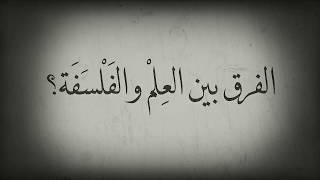 الفرق بين العِلِمْ والفَلْسَفَة؟